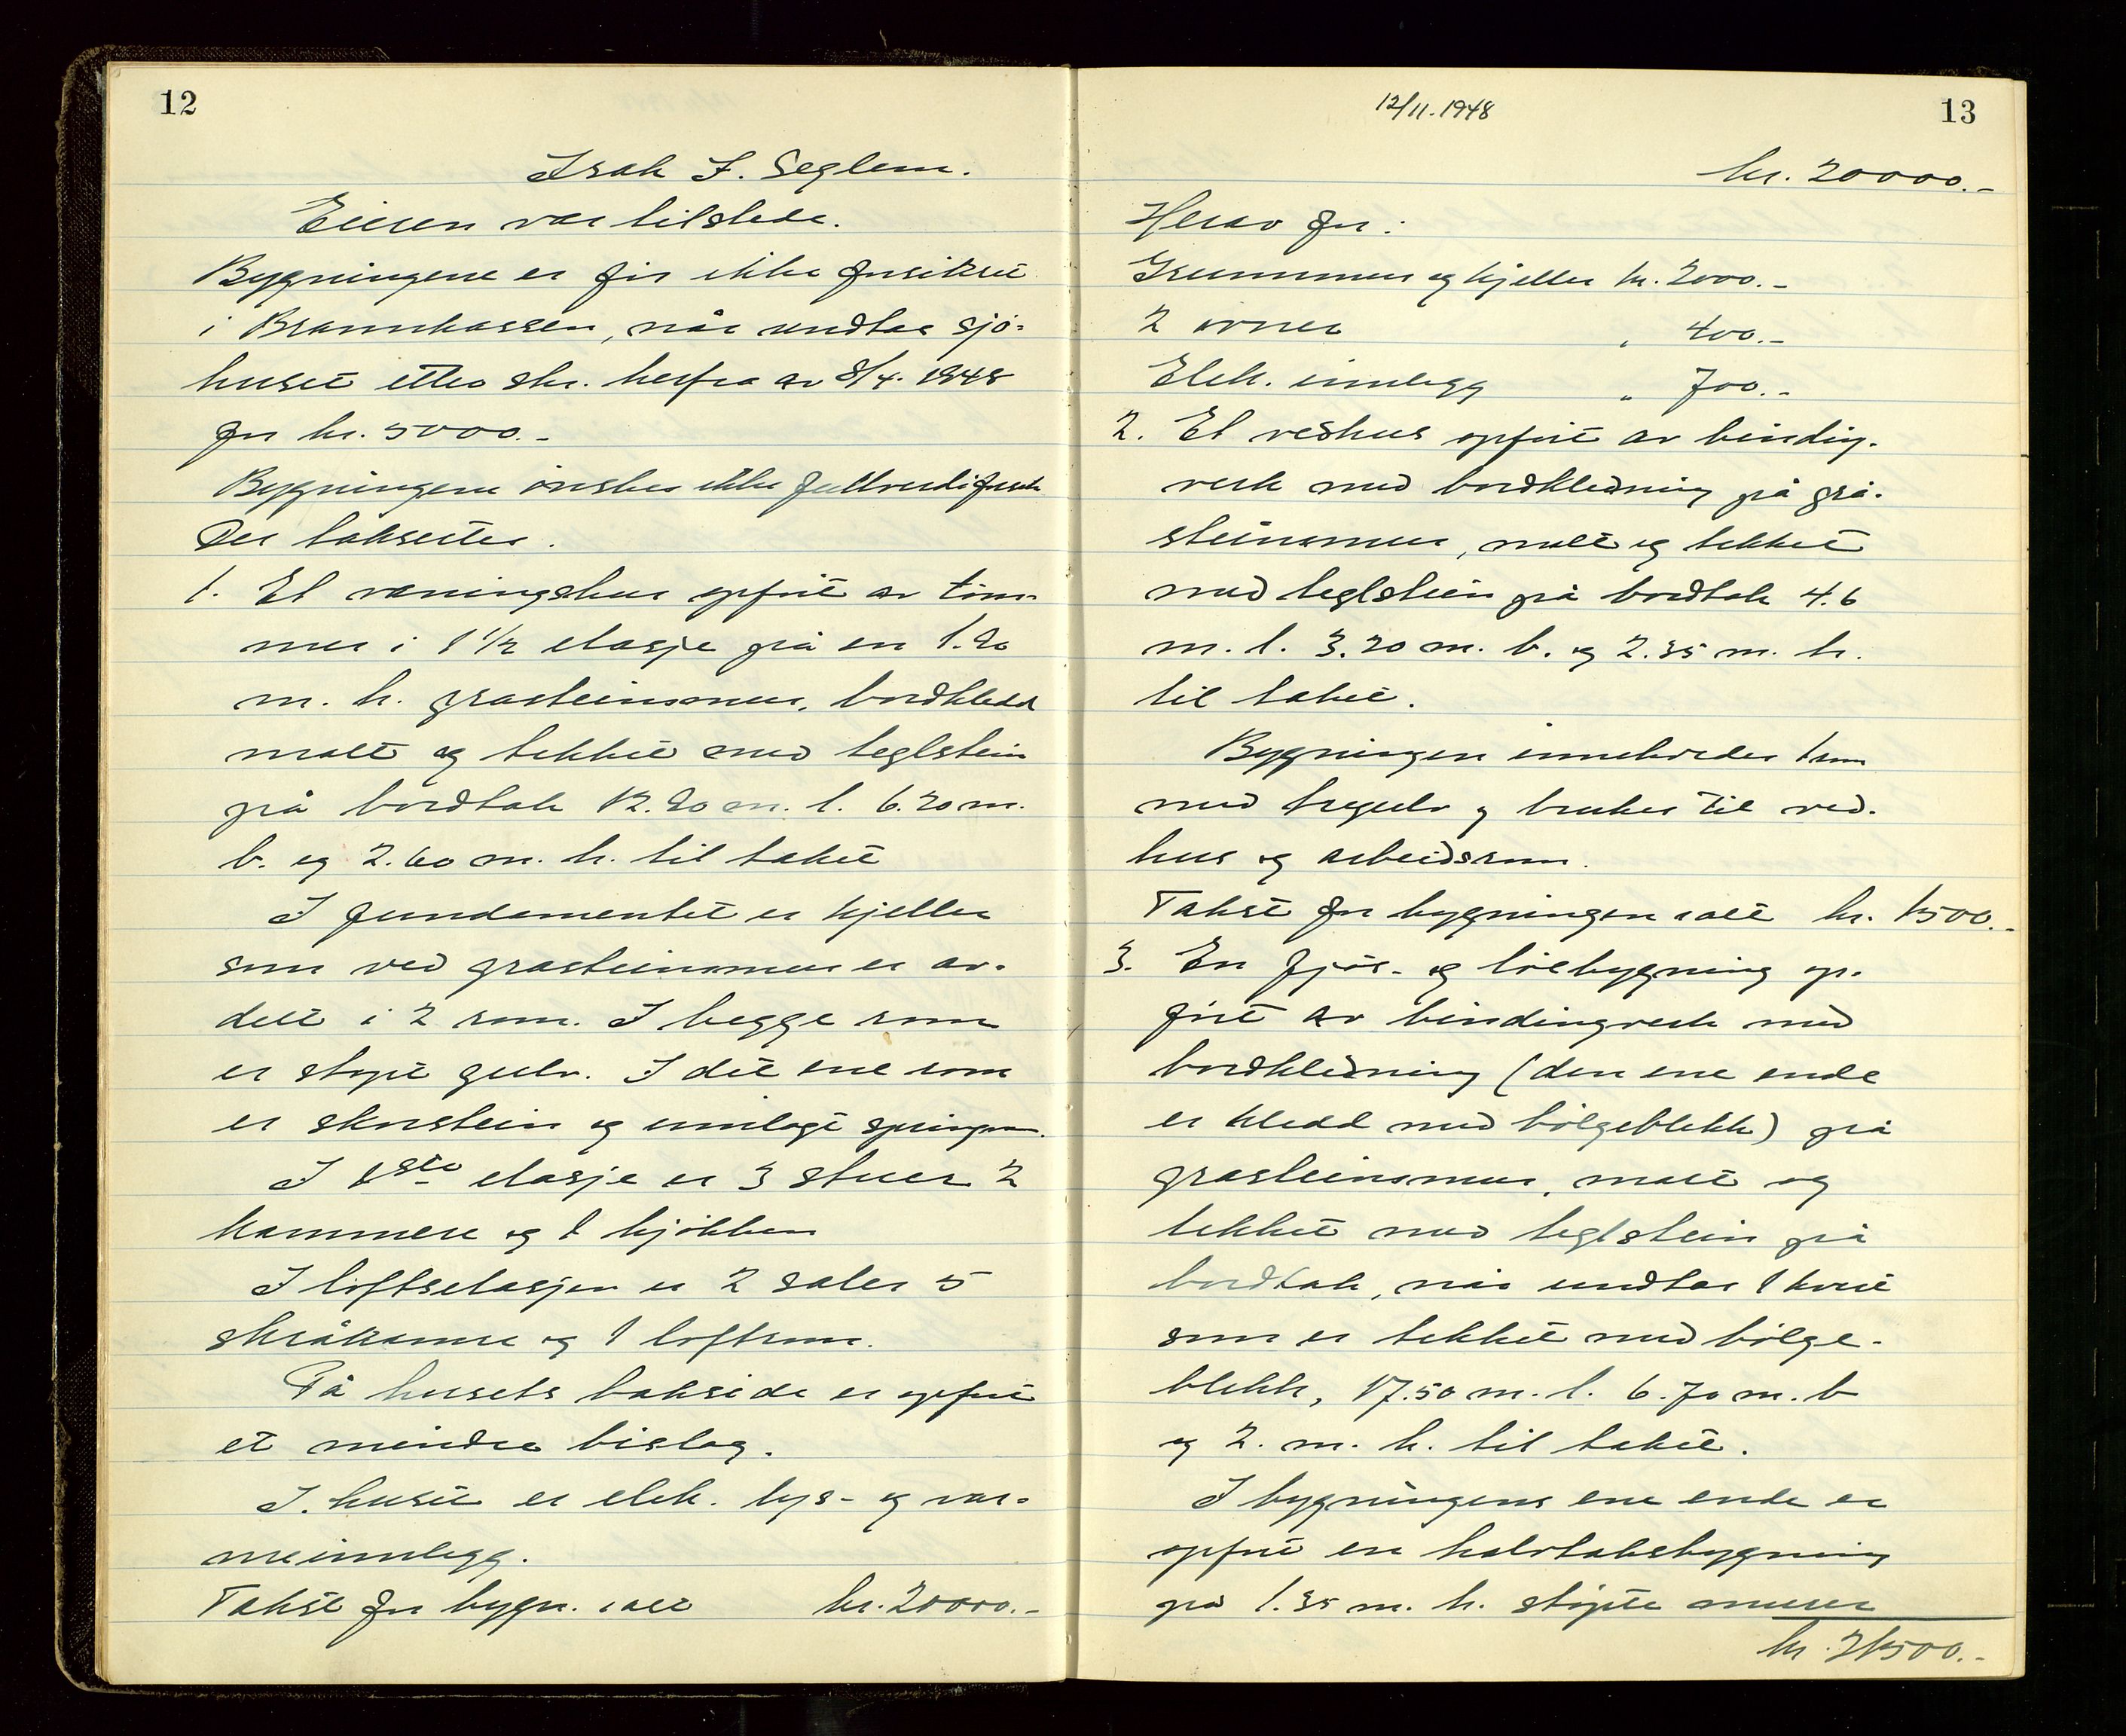 12
Isak I. Seglem.
Eieren var tilstede.
Bygningene er før ikke forsikret
i Brannkassen, når undtas sjø-
huset etter skr. herfra av 8/4. 1948
for kr. 5000.-
Bygningene ønskes ikke fullverdiforsik
Der takseres.
1. Et våningshus opført av tøm-
mer i 1 1/2 etasje på en 1.20
m. h. gråsteinsmur, bordkledd
malt og tekket med teglstein
på bordtak 12.20 m. l. 6.20 m.
b. og 2.60 m. h. til taket
I fundamentet er kjeller
som ved gråsteinsmur er av-
delt i 2 rom. I begge rom
er støpt gulv. I det ene rom
er skorstein og innlagt
I 1ste etasje er 3 stuer 2
kammere og 1 kjøkken
I loftsetasjen er 2 saler 5
skråkamre og 1 loftsrom.
På husets bakside er opført
et mindre bislag.
I. huset er elek. lys- og var-
meinnlegg.
Takst for bygn. ialt kr. 20000.-
12/11.1948
13
kr. 20000.-
Herav for:
Grunnmur og kjeller kr. 2000.-
2 ovner " 400.-
Elek. innlegg " 700.-
2. Et vedhus opført av binding-
verk med bordkledning på grå-
steinsmur, malt og tekket
med teglstein på bordtak 4.6
m. l. 3.20 m. b. og 2.35 m. h.
til taket.
Bygningen inneholder 1 rom
med tregulv og brukes til ved-
hus og arbeidsrom.
Takst for bygningen ialt kr. 1500.-
3. En fjøs- og løebygning op-
ført av bindingverk med
bordkledning (den ene ende
er kledd med bølgeblekk) på
gråsteinsmur, malt og
tekket med teglstein på
bordtak, når undtas 1 kvist
som er tekket med bølge-
blekk, 17.50 m. l. 6.70 m. b
og 2. m. h. til taket.
I bygningens ene ende er
opført en halvtaksbygning
på 1.35 m. h. støpte murer
kr. 21500.-